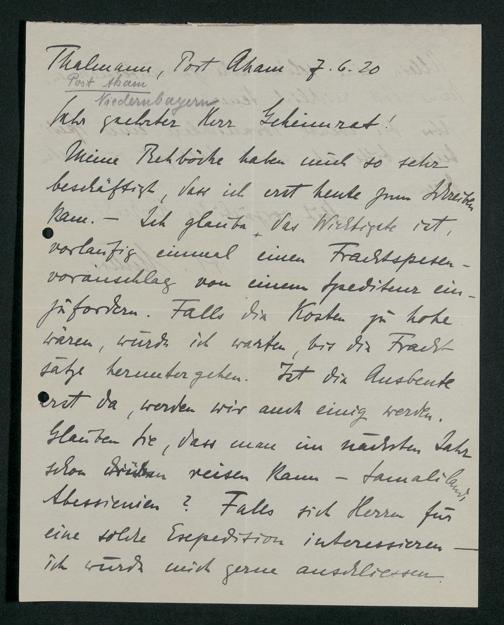 Thalmann, Post Aham 7.6.20
Post Aham
Niedernbayern
Sehr geehrter Herr Geheimrat!
Meine Rehböcke haben mich so sehr
beschäftigt, dass ich erst heute zum Schreiben
kam. – Ich glaube, das Wichtigste ist,
vorläufig einmal einen Frachtspesen-
voranschlag von einem Spediteur ein-
zufordern. Falls die Kosten zu hohe
wären, würde ich warten, bis die Fracht
sätze heruntergehen. Ist die Ausbeute
erst da, werden wir auch einig werden.
Glauben Sie, dass man im nächsten Jahr
schon reisen kann – Somaliland,
Abessienien? Falls sich Herren für
eine solche Esepedition interessieren –
ich würde mich gerne anschliessen.